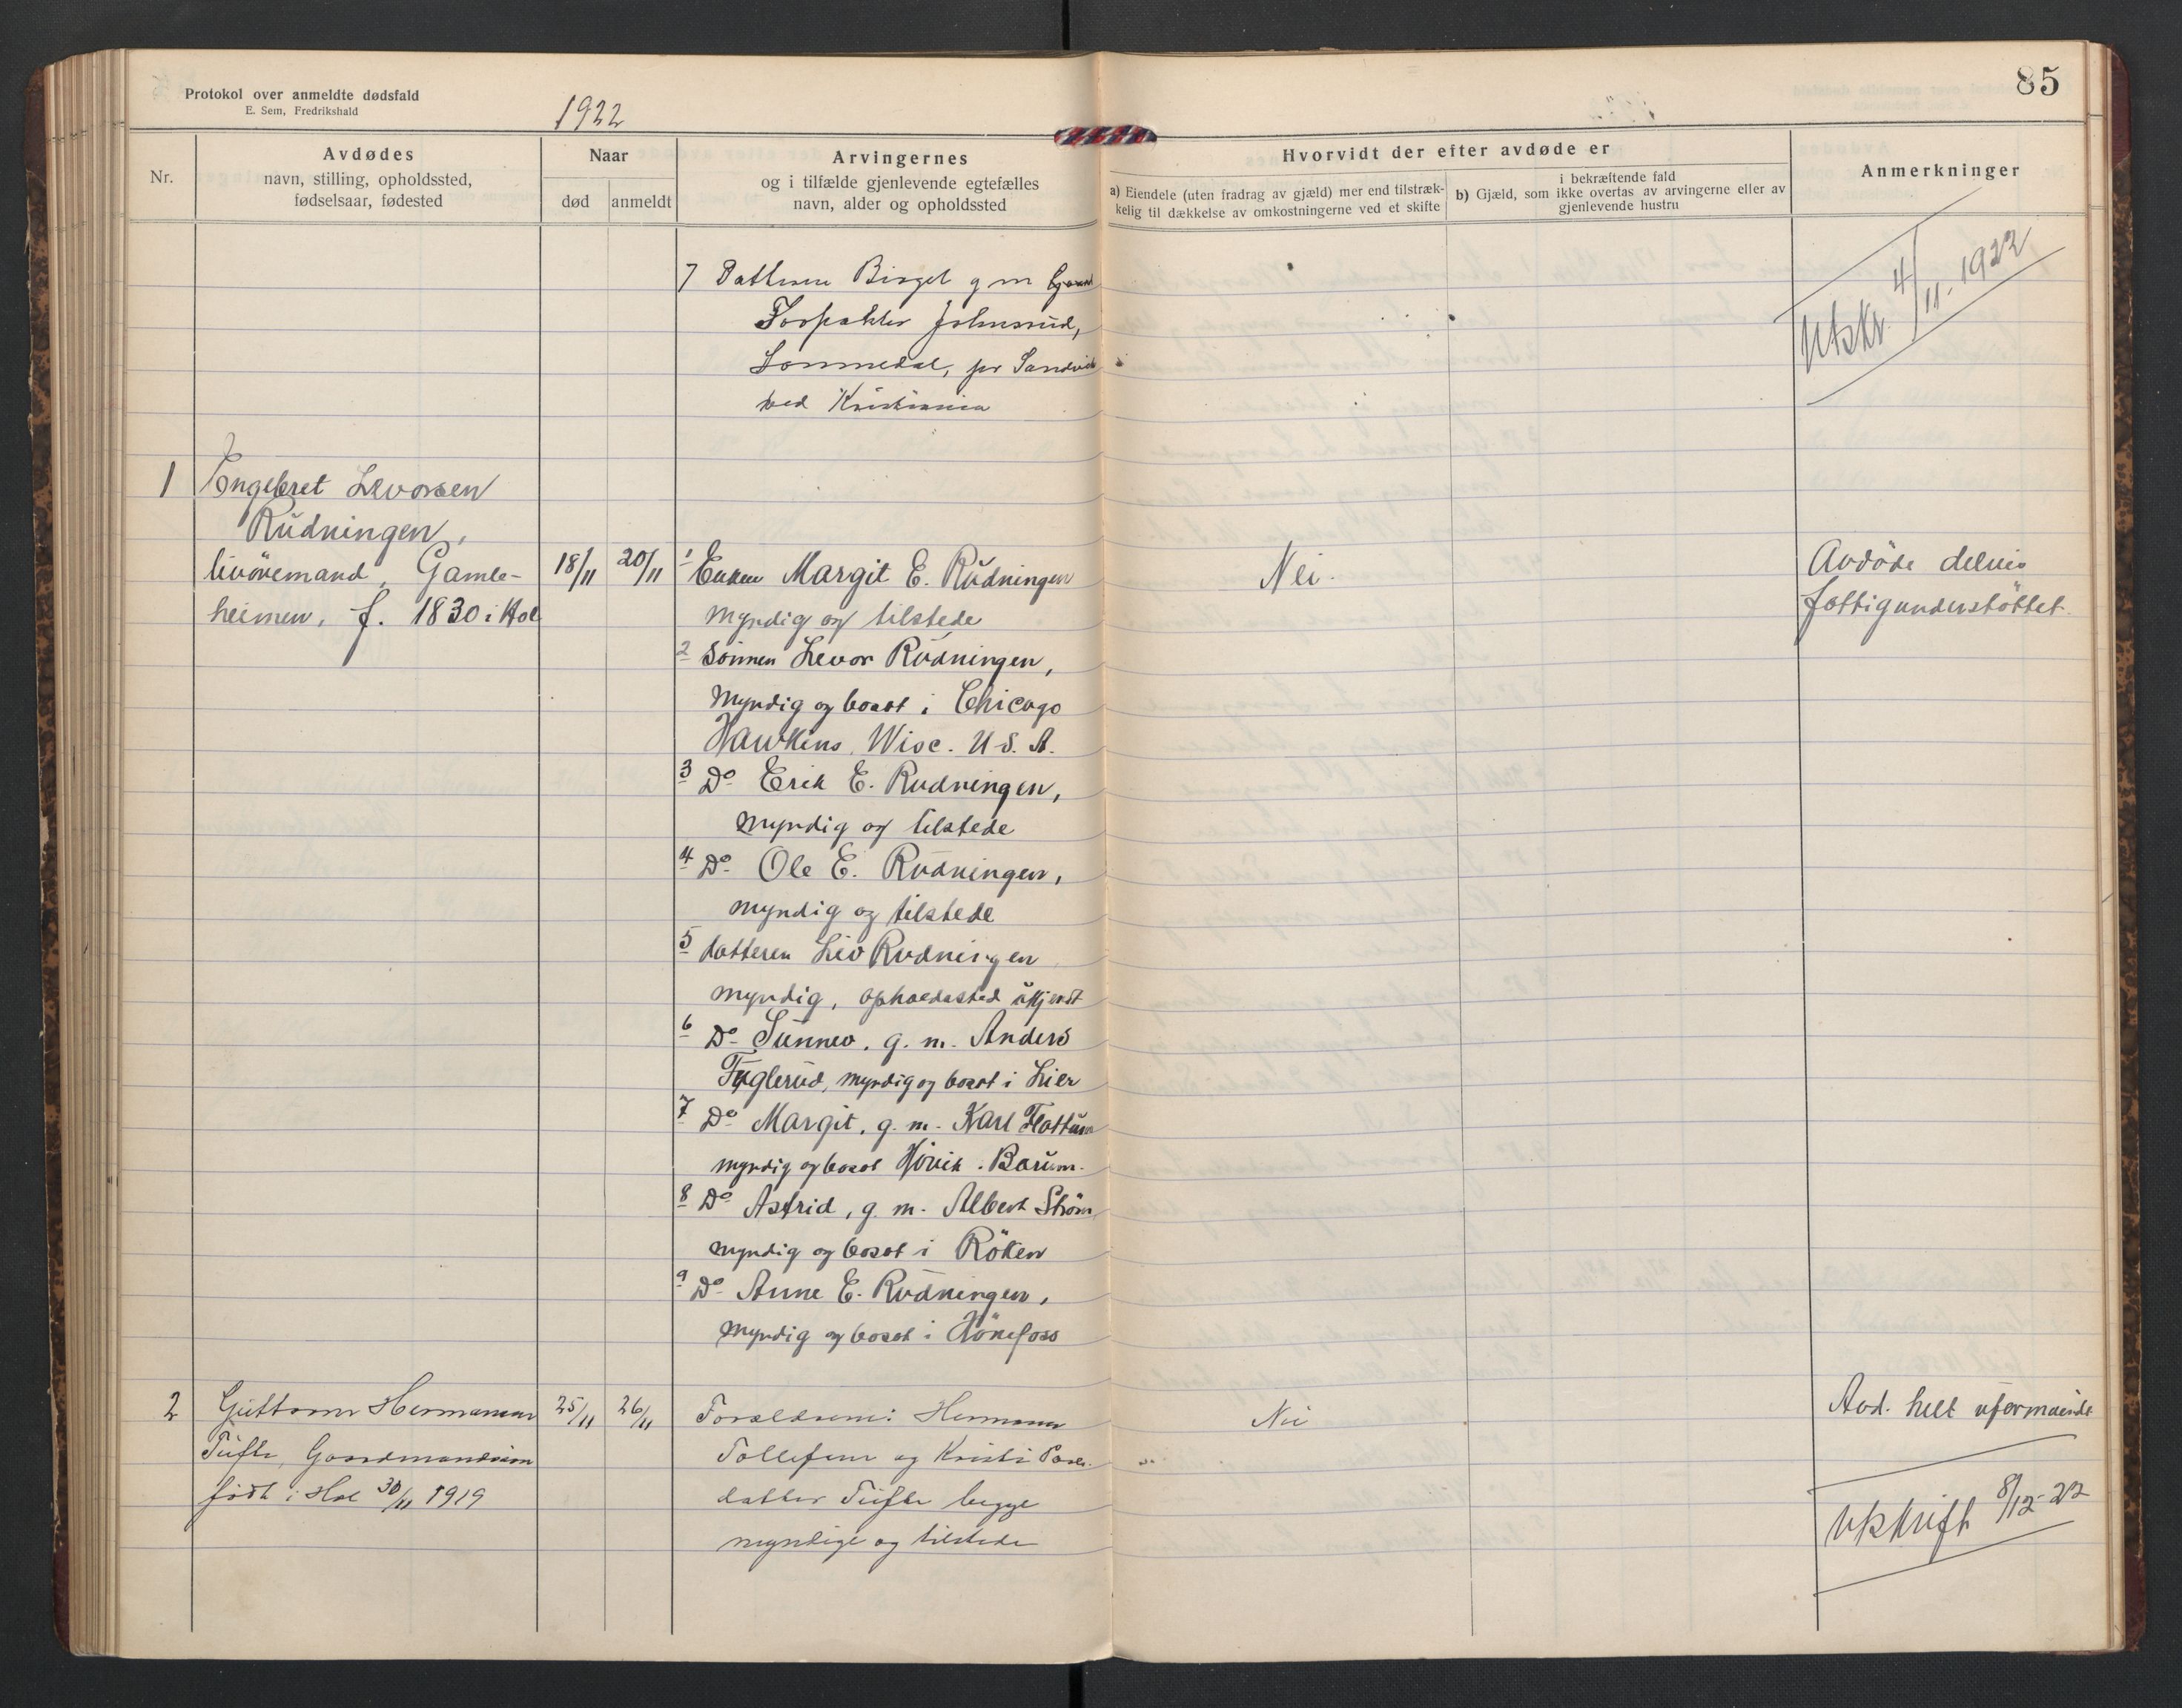 85
Protokol over anmeldte dødsfald
E. Sem, Fredrikshald
1922
Nr.
Avdødes
navn, stilling, opholdssted,
fødselsaar, fødested
Naar
død
anmeldt
Arvingernes
og i tilfælde gjenlevende egtefælles
navn, alder og opholdssted
Hvorvidt der efter avdøde er
a) Eiendele (uten fradrag av gjæld) mer end tilstræk-
kelig til dækkelse av omkostningerne ved et skifte
i bekræftende fald
b) Gjæld, som ikke overtas av arvingerne eller av
gjenlevende hustru
Anmerkninger
7 Datteren Birgel g m
Forpakter Johnsrud,
Lommedal, pr Sandvik
ved Kristiania
Utskr. 4/11. 1922
1
Engebret Levorsen
Rudningen,
livöremand, Gamle-
heimen, f. 1830 i Hol
18/11
20/11
1 Enken Margit E. Rudningen
myndig og tilstede
2 Sönnen Levor Rudningen,
Myndig og bosat i Chicago
Hawkins, Wisc. U.S.A.
3 Do Erik E. Rudningen,
myndig og tilstede
4 Do Ole E. Rudningen,
myndig og tilstede
5 datteren Liv Rudningen
myndig, opholdssted ukjendt
6 Do Sunnev. g. m. Anders
Fuglerud, myndig og bosat i Lier
7 Do Margit, g. m. Karl Flattum
myndig og bosat Hövik. Bærum.
8 Do Astrid, g. m. Albert Ström
myndig og bosat i Röken
9 Do Anne E. Rudningen,
myndig og bosat i Hönefoss
Nei.
Avdöde delvis
fattigunderstöttet.
2
Guttorm Hermansen
Tufte, Gaardmandssön
födt i Hol 30/11 1919
25/11
26/11
Forældrene: Hermann
Tollefsen og Kristi
datter Tufte begge
myndige og tilstede
Nei
Avd. helt uformuende
Utskrift 8/12-22